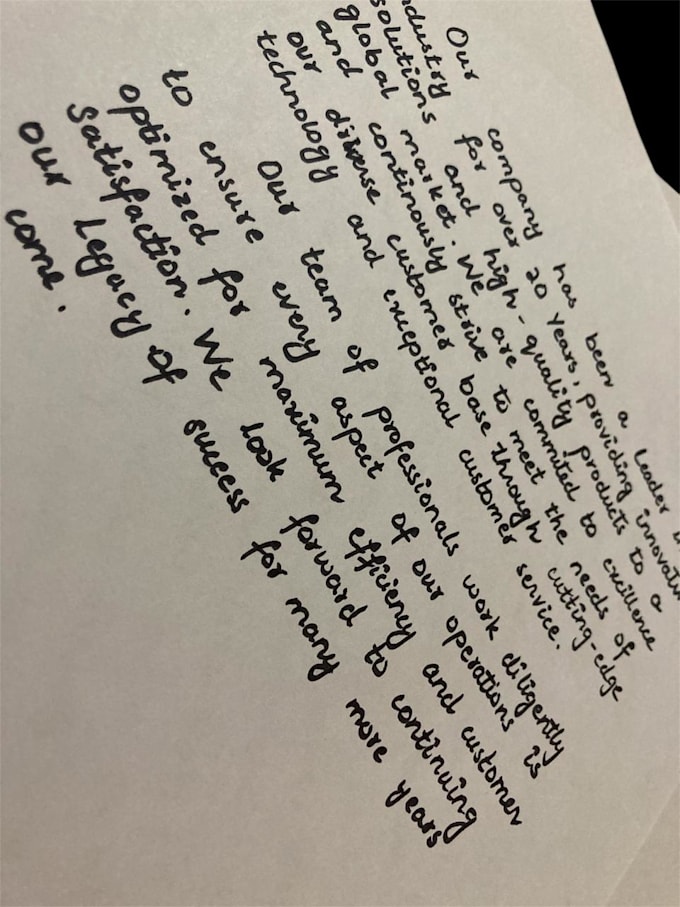 Our company has been a leader
ndustry for over 20 years, providing innovativ
solutions and high-quality products to a
global market. We are commited to excellence
and continously strive to meet the needs of
our diverse customer base through cutting-edge
technology and exceptional customer service.
Our team of professionals work diligently
to ensure every aspect of our operations is
optimized for maximum efficiency and customer
satisfaction. We look forward to continuing
our legacy of success for many more years
come.